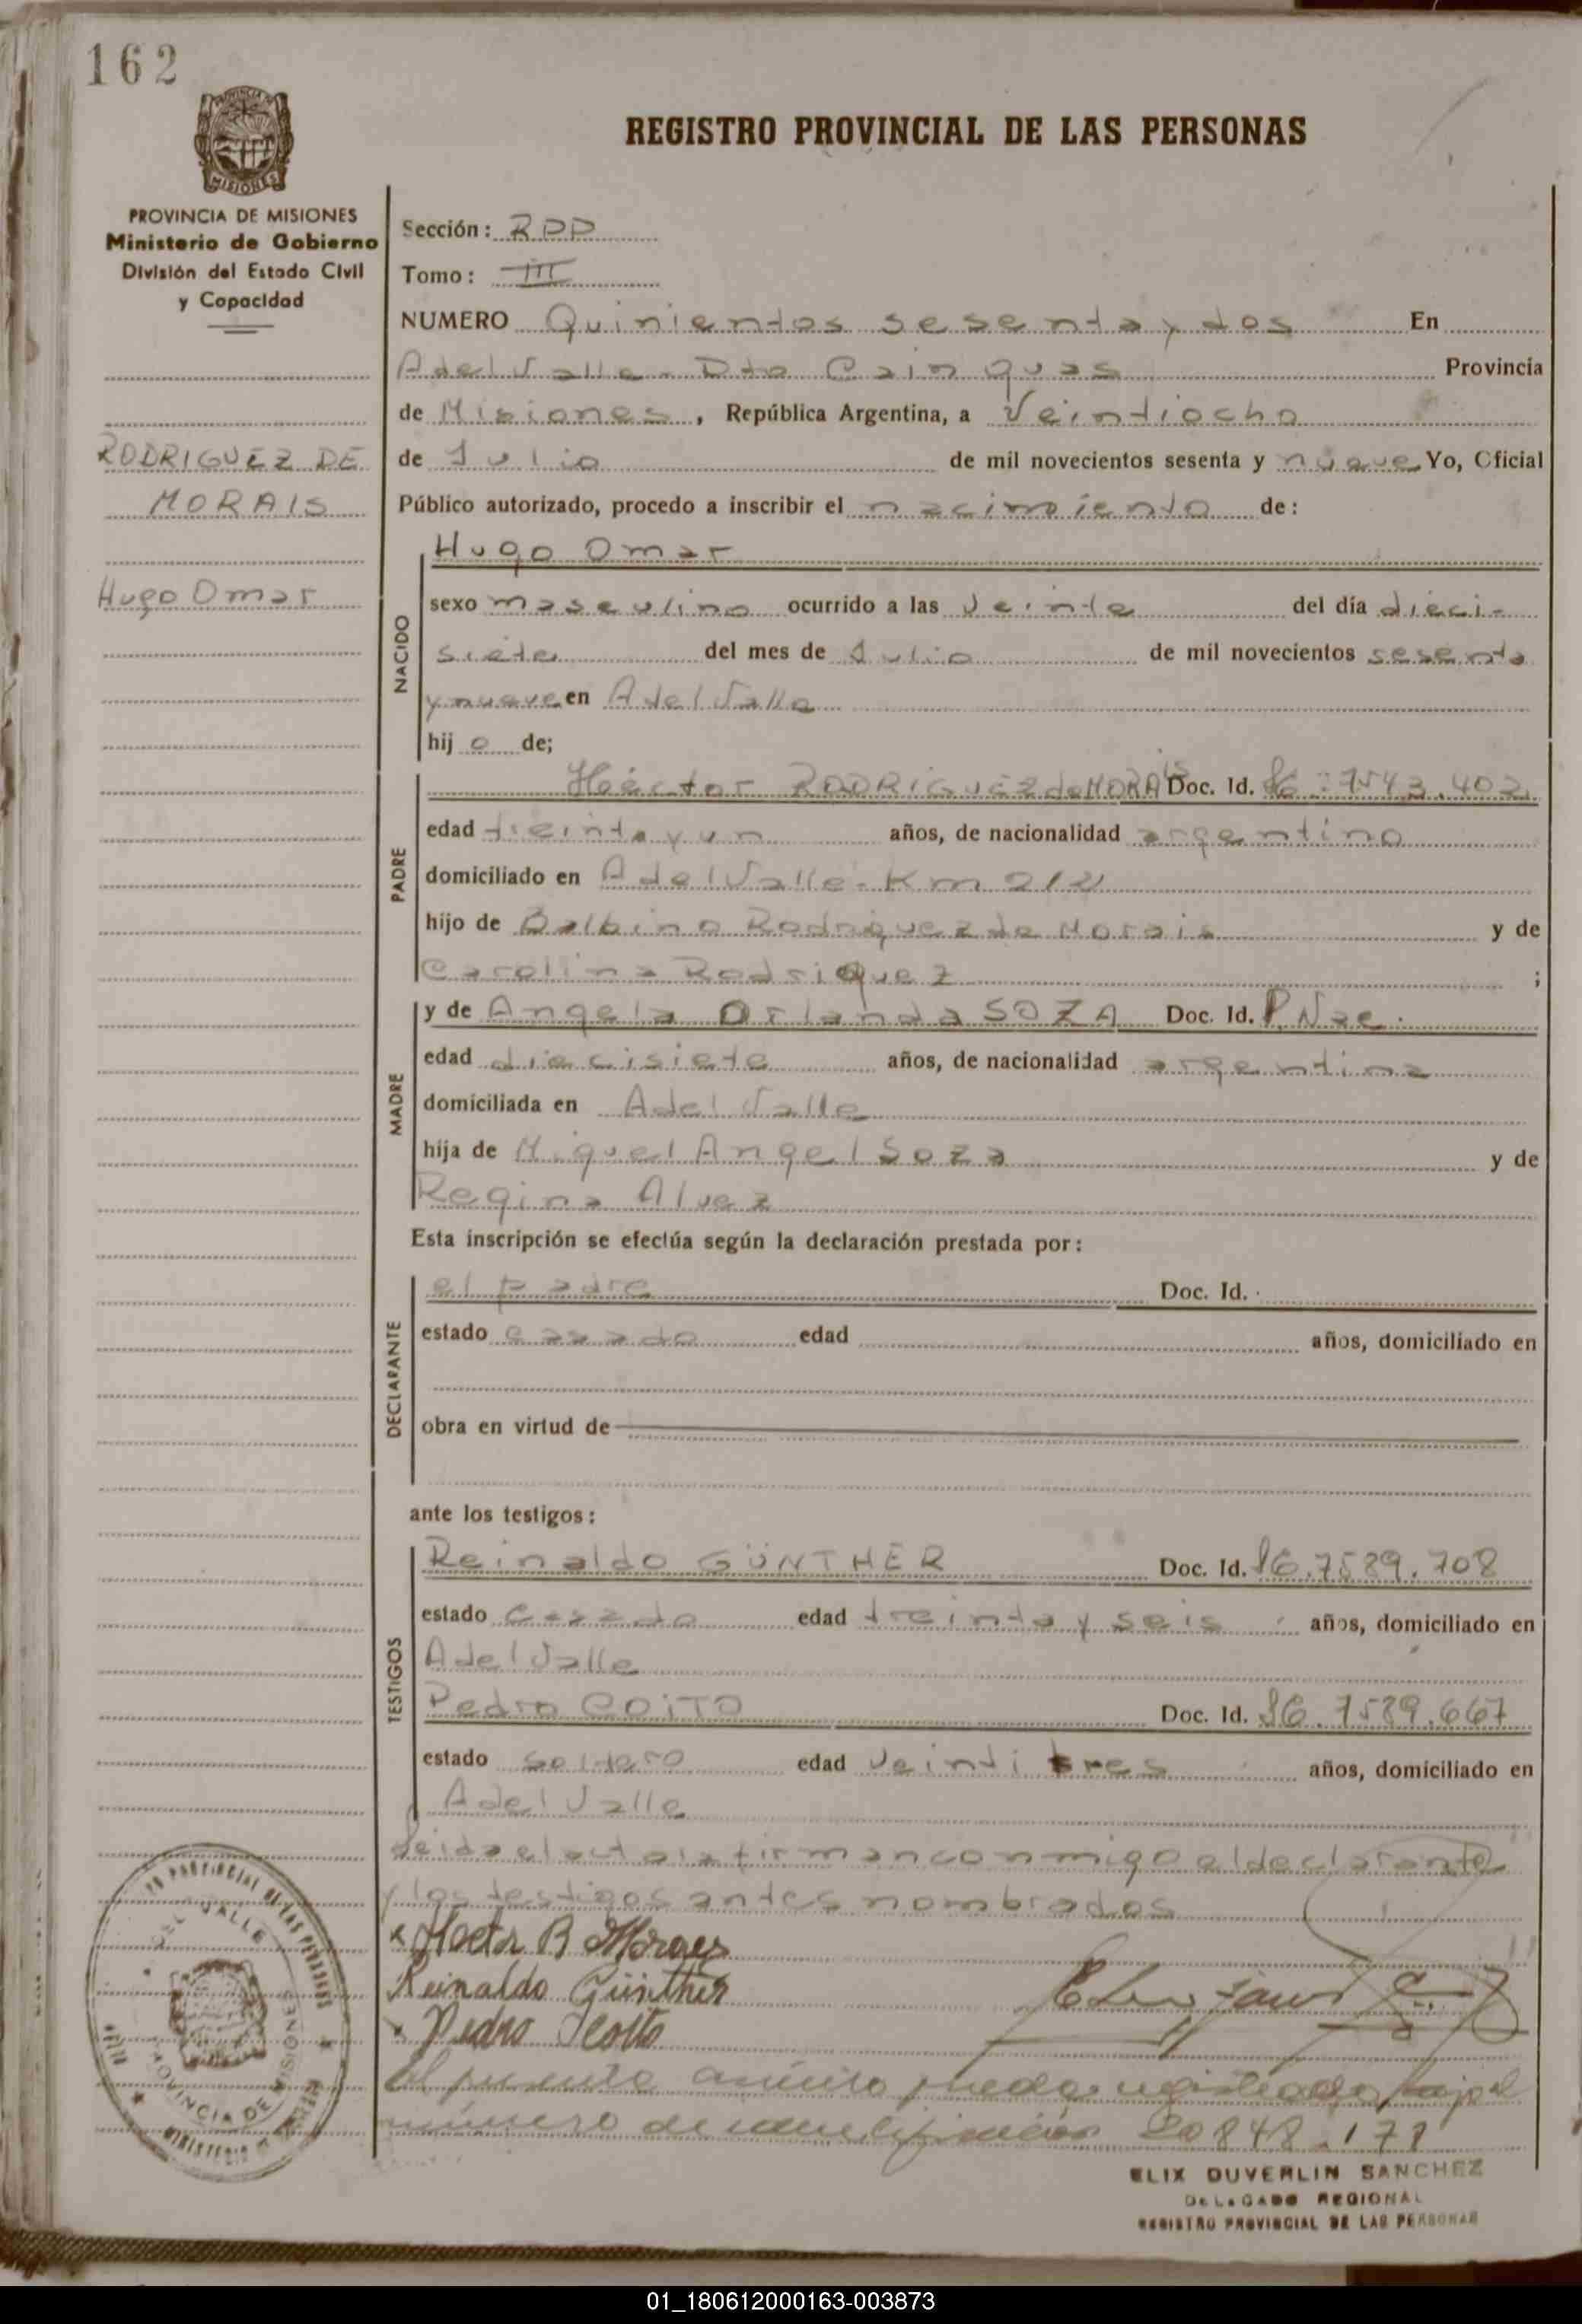 162
PROVINCIA DE MISIONES
Ministerio de Gobierno
División del Estado Civil
y Capacidad
RODRIGUEZ DE
MORAIS
Hugo Omar
REGISTRO PROVINCIAL DE LAS PERSONAS
Sección: RPP
Tomo: III
NUMERO Quinientos sesenta y dos En
A del Valle - Dto Cainguas Provincia
de Misiones, República Argentina, a Veintiocho
de Julio de mil novecientos sesenta y nueve Yo, Oficial
Público autorizado, procedo a inscribir el nacimiento de:
NACIDO
Hugo Omar
sexo masculino ocurrido a las veinte del día dieci-
siete del mes de Julio de mil novecientos sesenta
y nueve en A del Valle
hijo de;
PADRE
Héctor RODRIGUEZ de MORAIS Doc. Id. 7543.402
edad treinta y un años, de nacionalidad argentino
domiciliado en A del Valle - Km 212
hijo de Balbino Rodriguez de Morais y de
Carolina Rodriguez ;
MADRE
y de Angela Orlanda SOZA Doc. Id. P. Nac.
edad diecisiete años, de nacionalidad argentina
domiciliada en A del Valle
hija de Miguel Angel Soza y de
Regina Alvez
Esta inscripción se efectúa según la declaración prestada por:
DECLARANTE
el padre Doc. Id.
estado casado edad años, domiciliado en
obra en virtud de
ante los testigos:
TESTIGOS
Reinaldo GÜNTHER Doc. Id. 7589.708
estado casado edad treinta y seis años, domiciliado en
A del Valle
Pedro COITO Doc. Id. 7589.667
estado soltero edad veintitres años, domiciliado en
A del Valle
Leida el acta la firman conmigo el declarante
y los testigos antes nombrados
x Hector R Moraes
Reinaldo Günther
x Pedro Coito
El presente asiento queda registrado bajo el
número de identificación 20848.171
ELIX DUVERLIN SANCHEZ
DELEGADO REGIONAL
REGISTRO PROVINCIAL DE LAS PERSONAS
01_180612000163-003873